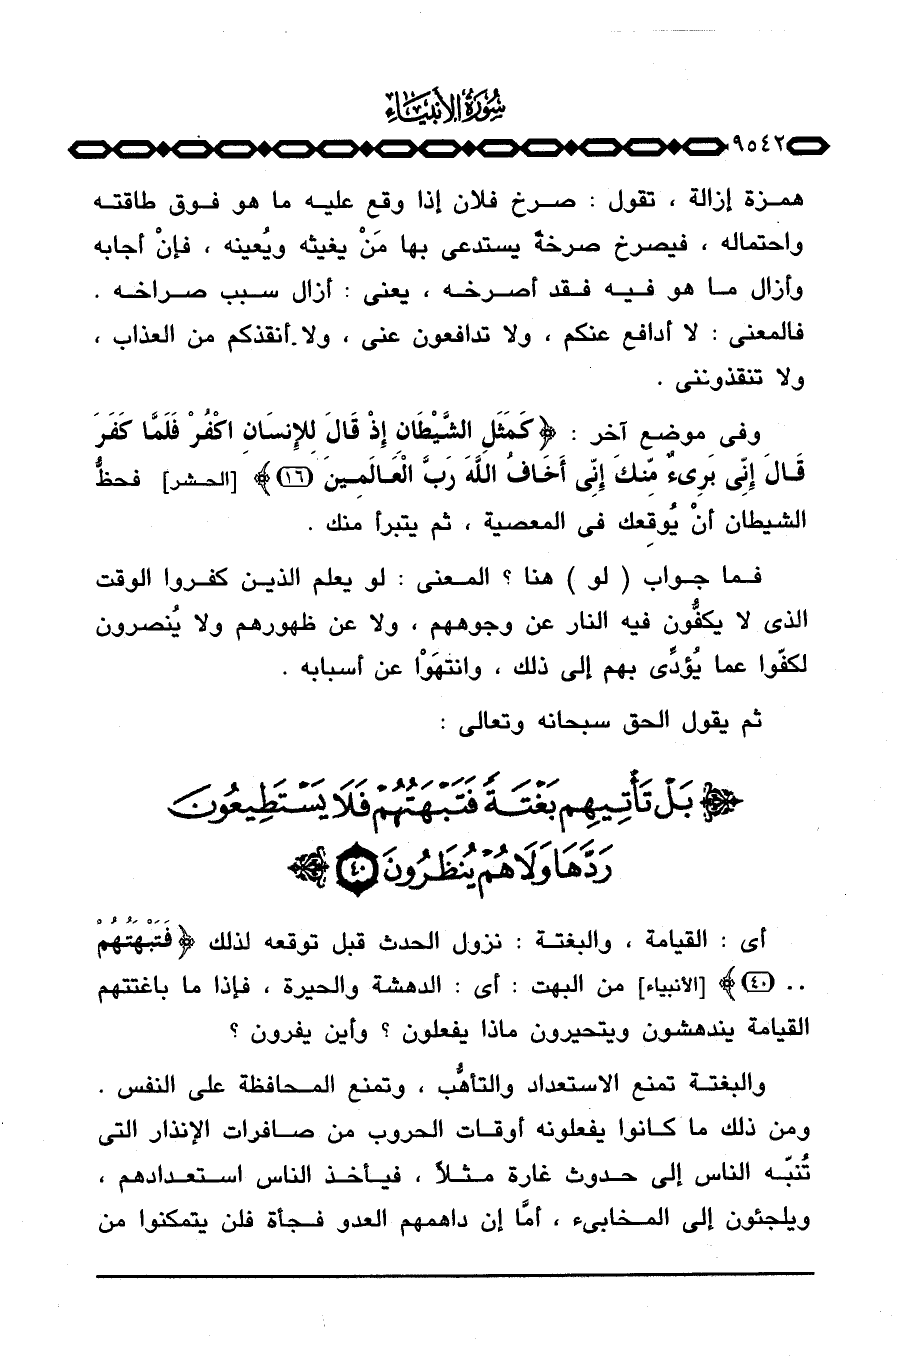 سورة الأنبياء
٩٥٤٢
همزة إزالة ، تقول : صرخ فلان إذا وقع عليه ما هو فوق طاقته
واحتماله ، فيصرخ صرخةً يستدعى بها مَنْ يغيثه ويُعينه ، فإنْ أجابه
وأزال ما هو فيه فقد أصرخه ، يعنى : أزال سبب صراخه .
فالمعنى : لا أدافع عنكم ، ولا تدافعون عنى ، ولا أنقذكم من العذاب ،
ولا تنقذوننى .
وفى موضع آخر : ﴿ كَمَثَلِ الشَّيْطَانِ إِذْ قَالَ لِلإِنسَانِ اكْفُرْ فَلَمَّا كَفَرَ
قَالَ إِنِّى بَرِىءٌ مِّنكَ إِنِّى أَخَافُ اللَّهَ رَبَّ الْعَالَمِينَ (١٦) ﴾ [الحشر] فحظُّ
الشيطان أنْ يُوقعك فى المعصية ، ثم يتبرأ منك .
فما جواب ( لو ) هنا ؟ المعنى : لو يعلم الذين كفروا الوقت
الذى لا يكفُّون فيه النار عن وجوههم ، ولا عن ظهورهم ولا يُنصرون
لكفّوا عما يُؤدِّى بهم إلى ذلك ، وانتهَوْا عن أسبابه .
ثم يقول الحق سبحانه وتعالى :
﴿ بَلْ تَأْتِيهِم بَغْتَةً فَتَبْهَتُهُمْ فَلَا يَسْتَطِيعُونَ
رَدَّهَا وَلَا هُمْ يُنظَرُونَ ٤٠ ﴾
أى : القيامة ، والبغتة : نزول الحدث قبل توقعه لذلك ﴿ فَتَبْهَتُهُمْ
.. (٤٠) ﴾ [الأنبياء] من البهت : أى : الدهشة والحيرة ، فإذا ما باغتتهم
القيامة يندهشون ويتحيرون ماذا يفعلون ؟ وأين يفرون ؟
والبغتة تمنع الاستعداد والتأهُّب ، وتمنع المحافظة على النفس .
ومن ذلك ما كانوا يفعلونه أوقات الحروب من صافرات الإنذار التى
تُنبِّه الناس إلى حدوث غارة مثلاً ، فيأخذ الناس استعدادهم ،
ويلجئون إلى المخابىء ، أمَّا إن داهمهم العدو فجأة فلن يتمكنوا من